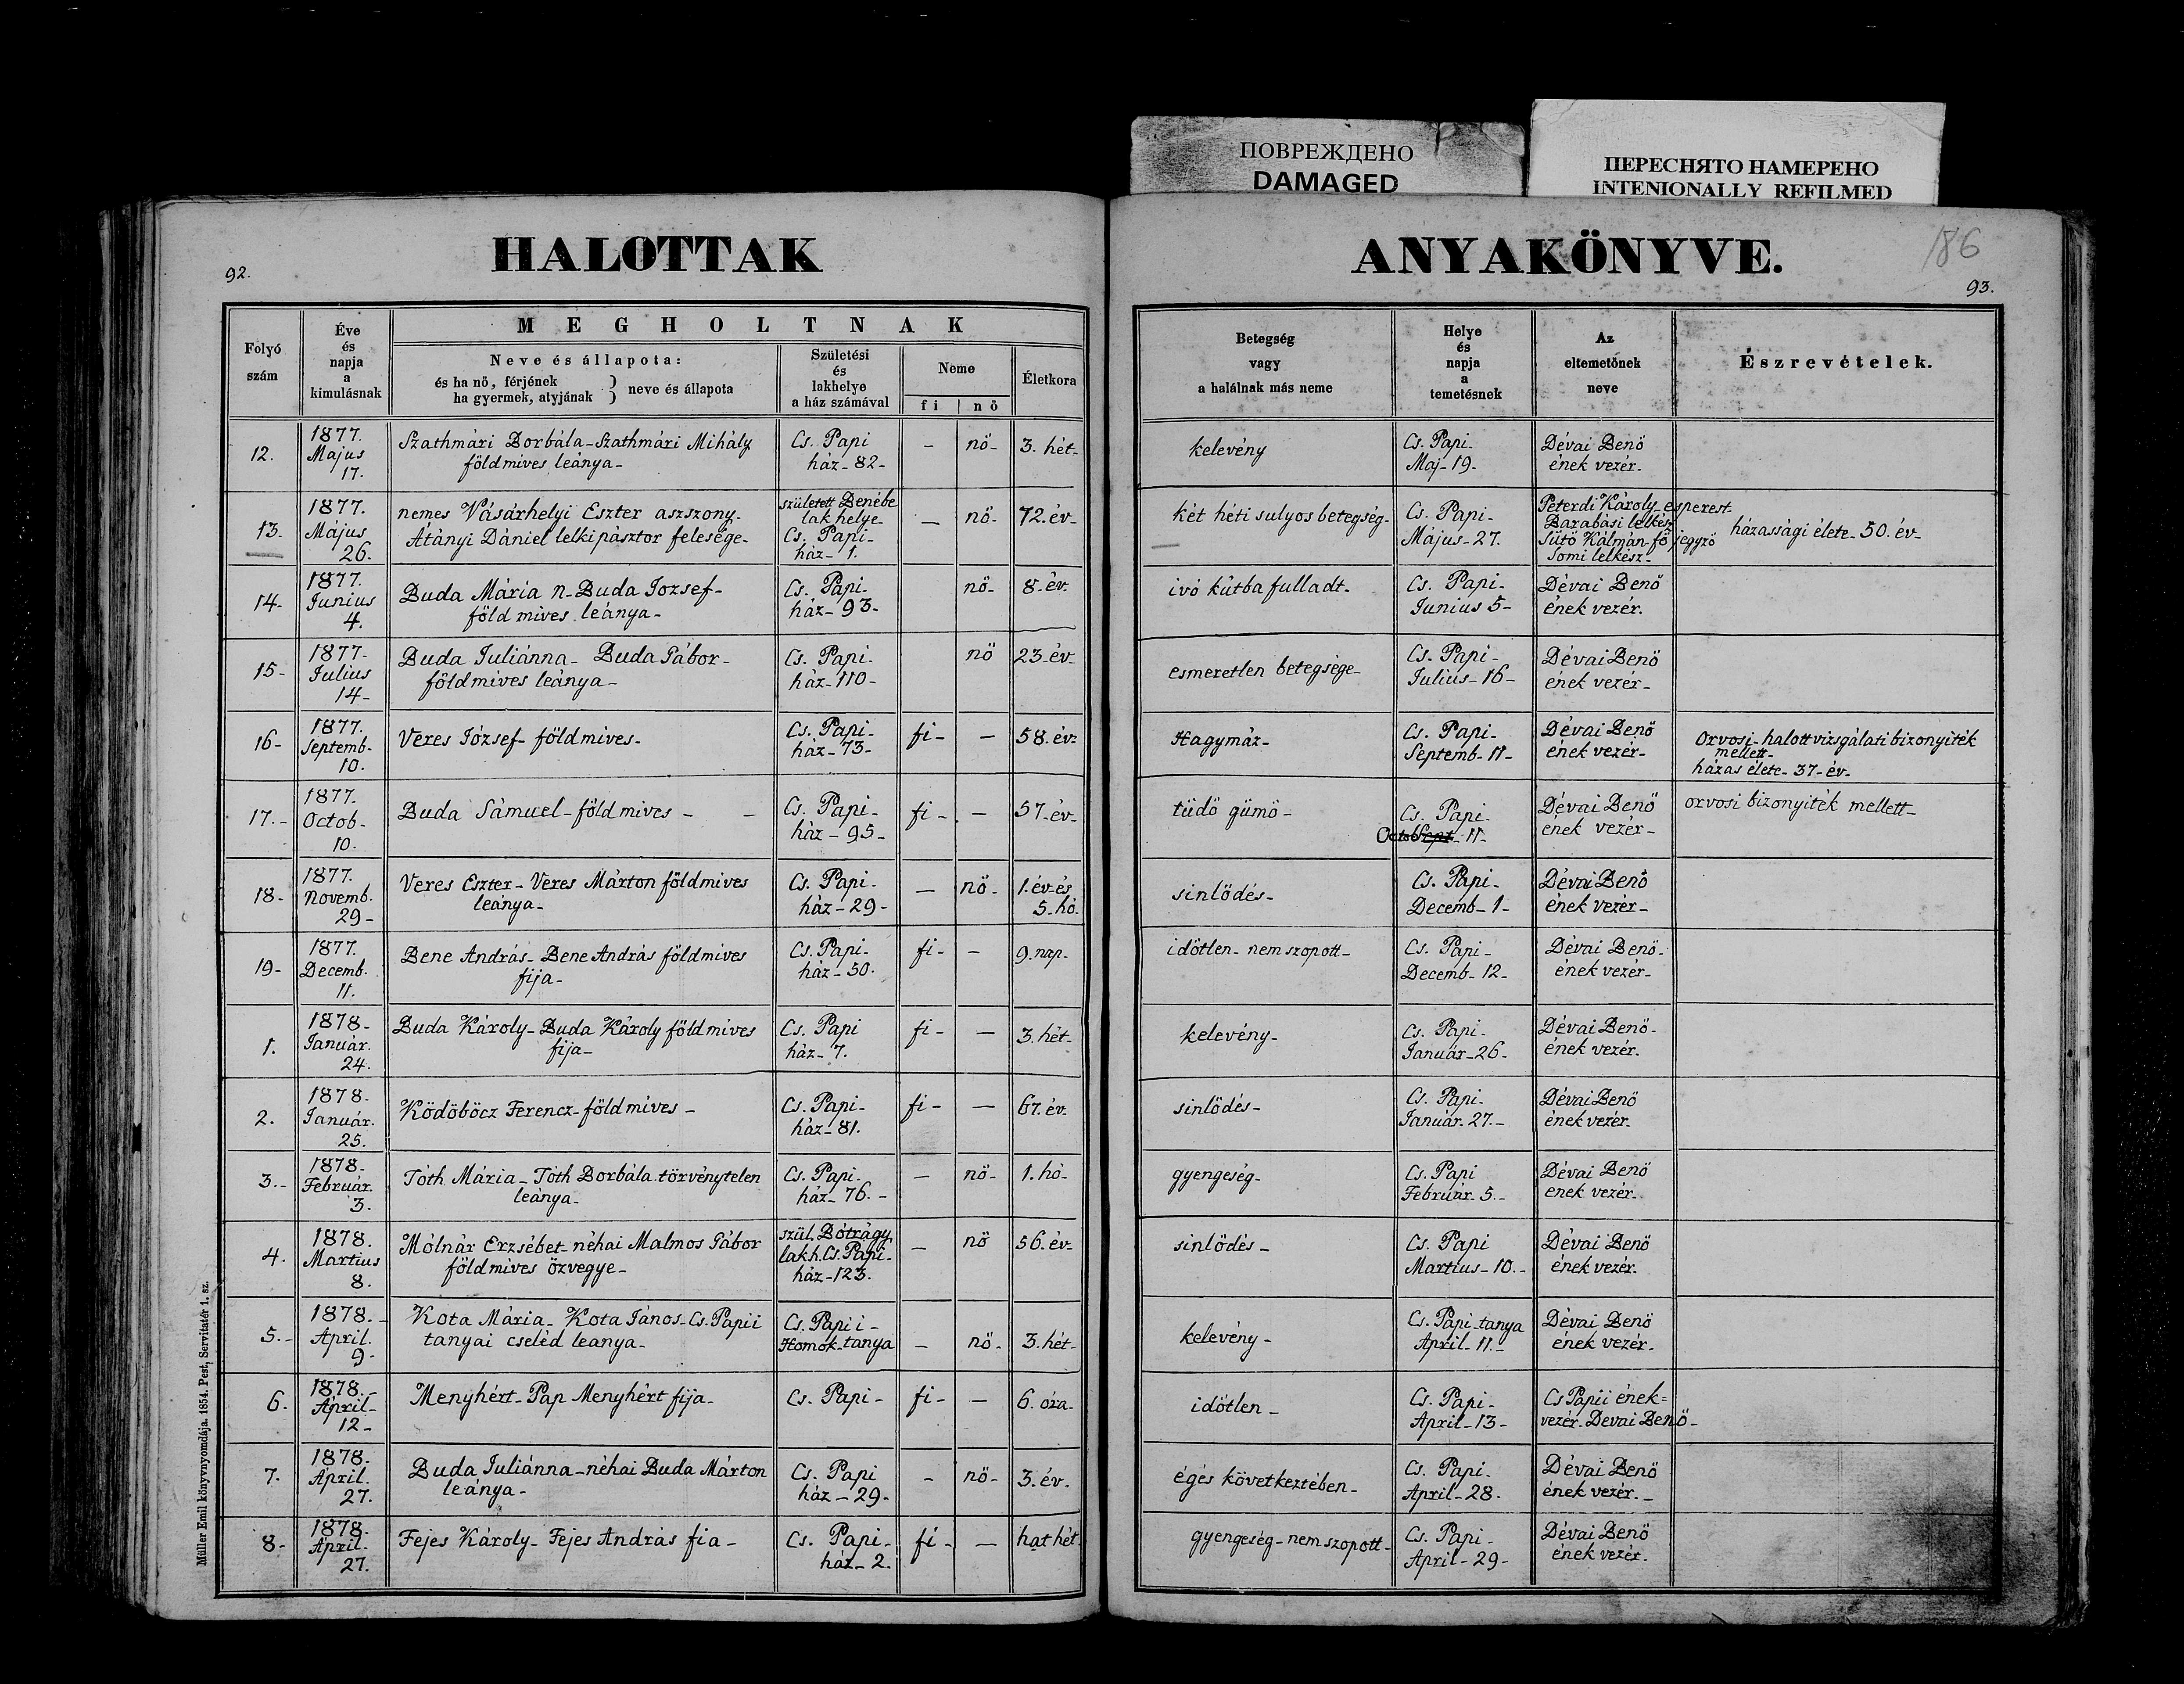 ПОВРЕЖДЕНО
DAMAGED
ПЕРЕСНЯТО НАМЕРЕНО
INTENIONALLY REFILMED
186
HALOTTAK
ANYAKÖNYVE.
92.
93.
Folyó
szám
Éve
és
napja
a
kimulásnak
MEGHOLTNAK
Neve és állapota:
és ha nö, férjének
ha gyermek, atyjának
} neve és állapota
Születési
és
lakhelye
a ház számával
Neme
fi | nö
Életkora
Betegség
vagy
a halálnak más neme
Helye
és
napja
a
temetésnek
Az
eltemetőnek
neve
Észrevételek.
12.
1877.
Majus
17.
Szathmári Borbála - Szathmári Mihály
földmives leánya -
Cs. Papi
ház - 82 -
–
nö -
3. hét -
kelevény
Cs. Papi -
Maj - 19 -
Dévai Benö
ének vezér -
13.
1877.
Május
26.
nemes Vásárhelyi Eszter aszszony -
Átányi Dániel lelkipásztor felesége -
született Benébe
lak helye -
Cs. Papi -
ház - 1.
–
nö -
72. év -
két héti sulyos betegség -
Cs. Papi -
Május - 27.
Péterdi Károly - esperest
Barabási lelkész
Sütö Kálmán - fö jegyzö
Somi lelkész -
házassági élete - 50. év -
14 -
1877.
Junius
4.
Buda Mária n - Buda Jozsef -
föld mives leánya -
Cs. Papi -
ház - 93 -
nö -
8 - év.
ivó kútba fulladt -
Cs. Papi -
Junius 5 -
Dévai Benö
ének vezér.
15 -
1877 -
Julius
14 -
Buda Juliánna - Buda Gábor -
földmives leánya -
Cs. Papi -
ház - 110 -
nö
23 - év -
esmeretlen betegsége -
Cs. Papi -
Julius - 16 -
Dévai Benö
ének vezér -
16 -
1877.
Septemb -
10.
Veres József - földmives -
Cs. Papi -
ház - 73 -
fi -
–
58. év -
Hagymáz -
Cs. Papi -
Septemb - 11 -
Dévai Benö
ének vezér -
Orvosi - halott vizsgálati bizonyiték
mellett -
házas élete - 37 - év -
17. -
1877.
Octob -
10.
Buda Sámuel - földmives - -
Cs. Papi -
ház - 95 -
fi -
–
57 - év -
tüdö gümö -
Cs. Papi -
Octob Sept - 11 -
Dévai Benö
enek vezér -
orvosi bizonyiték mellett -
18 -
1877.
Novemb.
29 -
Veres Eszter - Veres Márton földmives
leánya -
Cs. Papi -
ház - 29 -
–
nö -
1. év - és
5 - hó.
sinlödés -
Cs. Papi -
Decemb - 1 -
Dévai Benö
ének vezér -
19 -
1877.
Decemb.
11.
Bene András - Bene András földmives
fija -
Cs. Papi -
ház - 50.
fi -
–
9. nap -
idötlen - nem szopott -
Cs. Papi -
Decemb - 12 -
Dévai Benö -
ének vezér -
1.
1878 -
Január.
24.
Buda Károly - Buda Károly földmives
fija -
Cs. Papi
ház - 7.
fi -
–
3. hét -
kelevény -
Cs. Papi -
Január - 26 -
Dévai Benö -
ének vezér.
2.
1878 -
Január.
25.
Ködöböcz Ferencz - földmives -
Cs. Papi -
ház - 81.
fi -
–
67. év.
sinlödés -
Cs. Papi -
Január - 27. -
Dévai Benö
ének vezér.
3. -
1878 -
Február.
3.
Tóth Mária - Tóth Borbála törvénytelen
leánya -
Cs. Papi -
ház - 76. -
–
nö -
1. hó -
gyengeség -
Cs. Papi
Február - 5. -
Dévai Benö
enek vezér.
4.
1878.
Martius
8.
Mólnár Erzsébet - néhai Malmos Gábor
földmives özvegye -
szül. Bótrágy
lakh. Cs. Papi -
ház - 123.
–
nö
56. év -
sinlödés -
Cs. Papi
Martius - 10. -
Dévai Benö
ének vezér.
5. -
1878. -
April.
9 -
Kota Mária - Kota János - Cs. Papii
tanyai cseléd leanya -
Cs. Papii -
Homok - tanya
–
nö -
3. hét -
kelevény -
Cs. Papi - tanya
April - 11. -
Dévai Benö
ének vezér.
6.
1878.
April -
12 -
Menyhért - Pap Menyhért fija -
Cs. Papi -
fi -
–
6. óra -
idötlen -
Cs. Papi -
April - 13 -
Cs Papii ének=
vezér - Devai Benö -
7.
1878.
April.
27.
Buda Juliánna - néhai Buda Márton
leánya -
Cs. Papi
ház - 29 -
-
nö -
3. év -
égés következtében -
Cs. Papi -
April - 28.
Dévai Benö
ének vezér. -
8 -
1878.
April -
27.
Fejes Károly - Fejes András fia -
Cs. Papi -
ház - 2.
fi -
–
hat hét -
gyengeség - nem szopott -
Cs. Papi -
April - 29 -
Dévai Benö
ének vezér.
Müller Emil könyvnyomdája. 1854. Pest, Servitatér 1. sz.